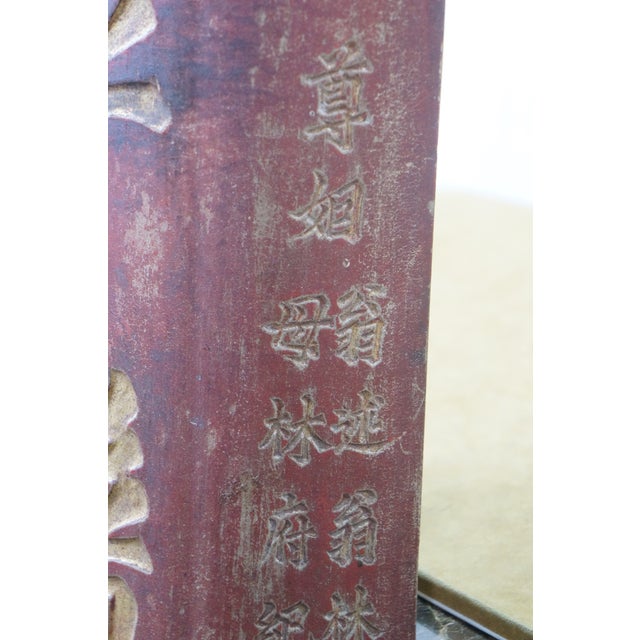 尊姻
翁述翁林
母林府紀